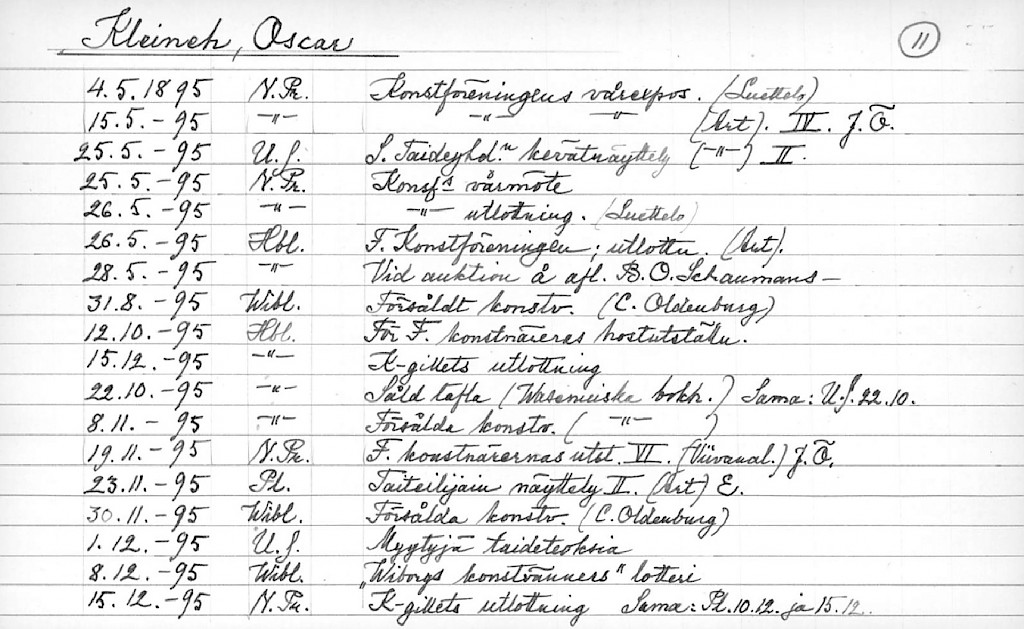 Kleineh, Oscar 11
4.5.1895 N.Pr. Konstföreningens vårexpos. (Luettelo)
15.5.-95 -"- -"- -"- (Art). IV. J.Ö.
25.5.-95 U.S. S. Taideyhd.n kevätnäyttely (-"-) II.
25.5.-95 N.Pr. Konsf.s vårmöte
26.5.-95 -"- -"- utlottning. (Luettelo)
26.5.-95 Hbl. F. Konstföreningen; utlottn. (Art).
28.5.-95 -"- Vid auktion å afl. B.O. Schaumans-
31.8.-95 Wibl. Försåldt konstv. (C. Oldenburg)
12.10.-95 Hbl. För F. konstnärers höstutställn.
15.12.-95 -"- K-gillets utlottning
22.10.-95 -"- Såld tafla (Waseniuska bokh.) Sama: U.S. 22.10.
8.11.- -95 -"- Försålda konstv. ( -"- )
19.11.-95 N.Pr. F. konstnärernas utst. VI. J.Ö.
23.11.-95 Pl. Taiteilijain näyttely II. (Art) E.
30.11.-95 Wibl. Försålda konstv. (C. Oldenburg)
1.12.-95 U.S. Myytyjä taideteoksia
8.12.-95 Wibl. "Wiborgs konstvänners" lotteri
15.12.-95 N.Pr. K-gillets utlottning Sama: Pl. 10.12. ja 15.12.